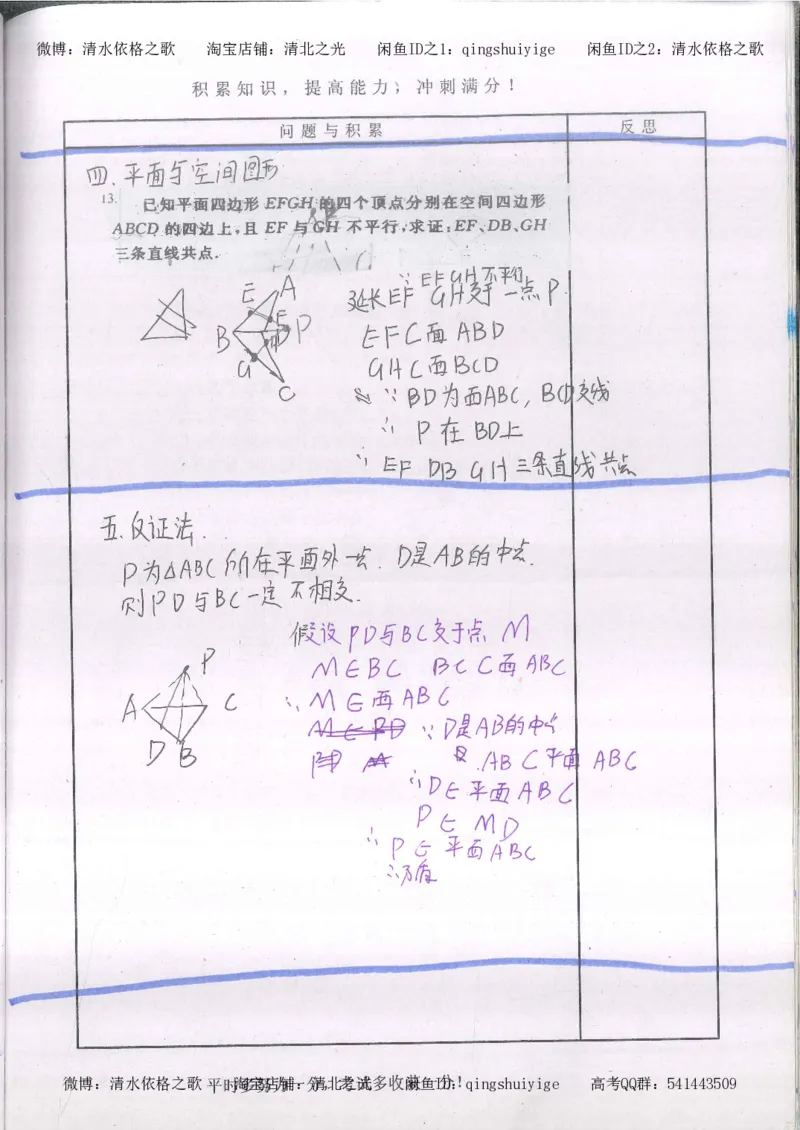 微博：清水依格之歌 淘宝店铺：清北之光 闲鱼ID之1：qingshuiyige 闲鱼ID之2：清水依格之歌
积累知识，提高能力；冲刺满分！
问题与积累 反思
四.平面与空间图形
13. 已知平面四边形 EFGH 的四个顶点分别在空间四边形
ABCD 的四边上,且 EF 与 GH 不平行,求证:EF、DB、GH
三条直线共点.
∵ EF GH 不平行
延长EF GH交于一点P.
E A
F
B D P
G H
C
EF⊂面 ABD
GH⊂面BCD
∵ BD为面ABC, BCD交线
∴ P在BD上
∵ EF DB GH三条直线共点
五.反证法.
P为△ABC所在平面外一点. D是AB的中点.
则PD与BC一定不相交.
假设PD与BC交于点 M
M∈BC BC⊂面ABC
∴ M∈面ABC
M∈PD ∵ D是AB的中点
P
A C
D B
AB⊂平面 ABC
∴D∈平面ABC
P∈ MD
∴ P∈平面ABC
∴矛盾
微博：清水依格之歌 淘宝店铺：清北之光 闲鱼ID：qingshuiyige 高考QQ群：541443509
平时多努力一分，考试多收获一分！